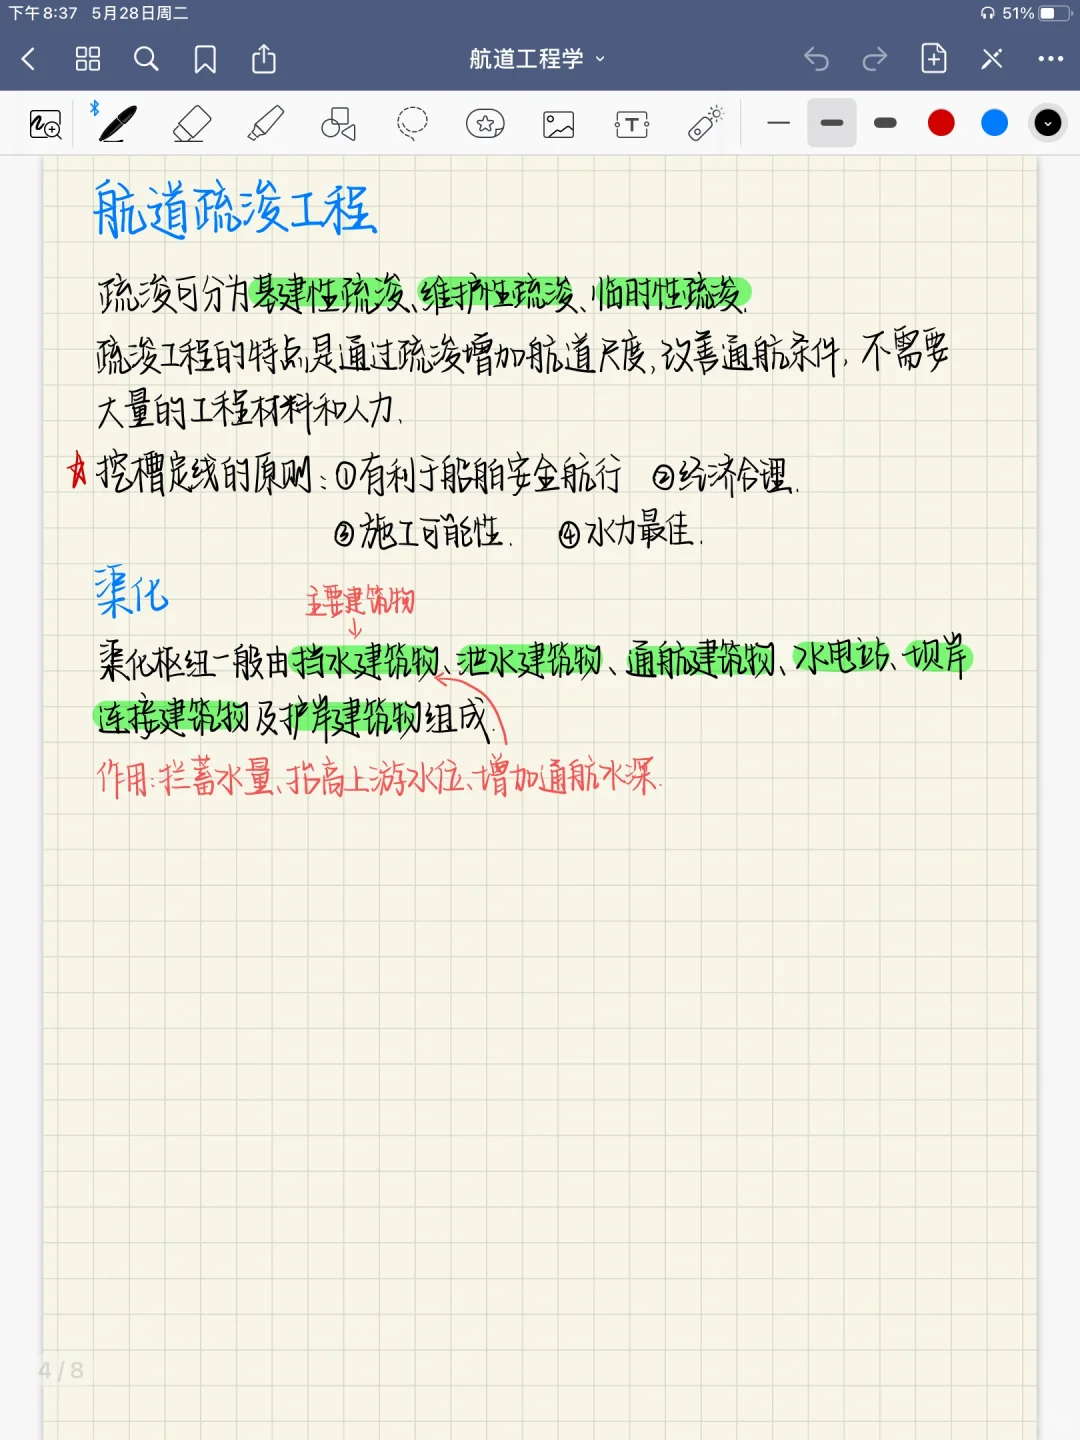 下午8:37 5月28日周二 51%
航道工程学
航道疏浚工程
疏浚可分为基建性疏浚、维护性疏浚、临时性疏浚.
疏浚工程的特点是通过疏浚增加航道尺度,改善通航条件,不需要
大量的工程材料和人力.
挖槽定线的原则:①有利于船舶安全航行 ②经济合理.
③施工可能性. ④水力最佳.
渠化
主要建筑物
渠化枢纽一般由挡水建筑物、泄水建筑物、通航建筑物、水电站、坝岸
连接建筑物及护岸建筑物组成.
作用:拦蓄水量、抬高上游水位、增加通航水深.
4/8